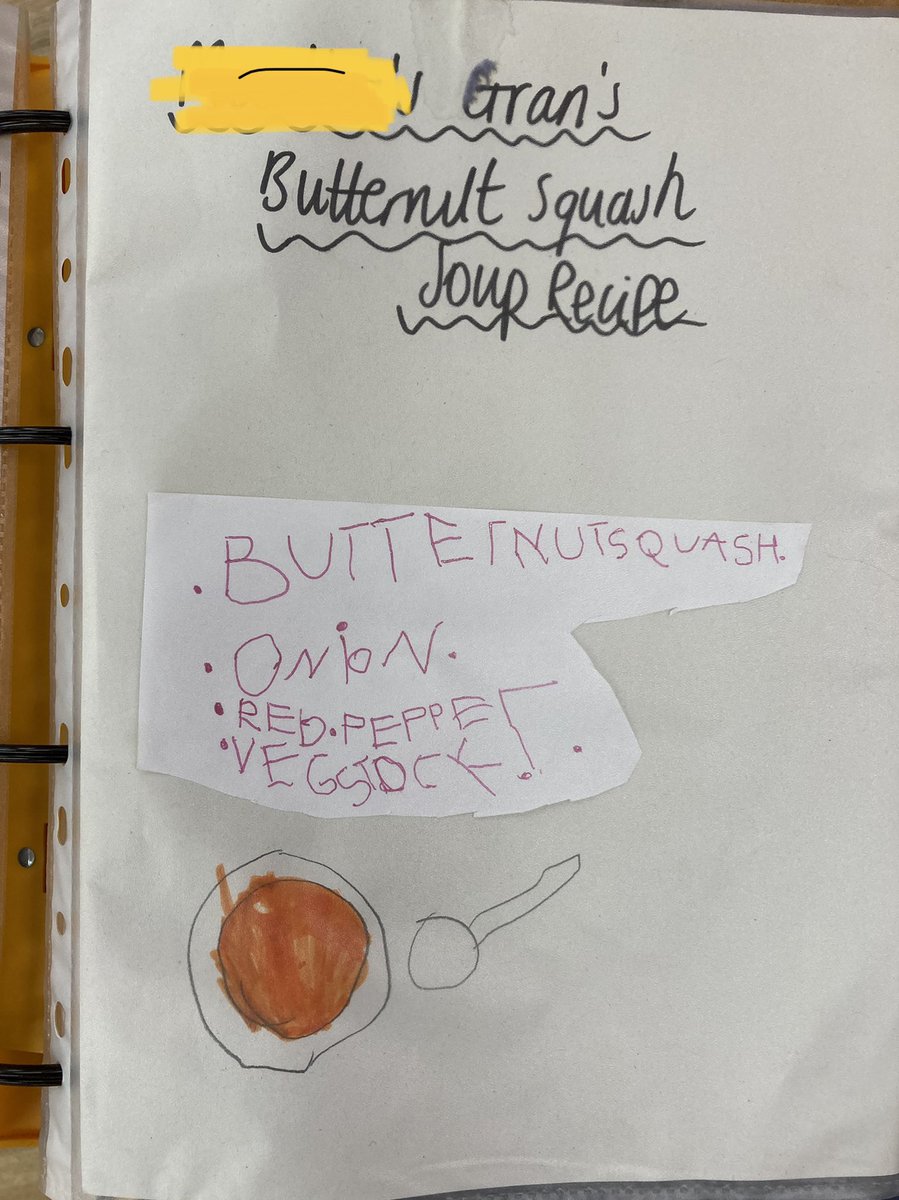 Gran's
Butternult Squash
Soup Recipe
. BUTTERNUTSQUASH.
. ONiON.
. RED.PEPPER
. VEGSTOCK! .